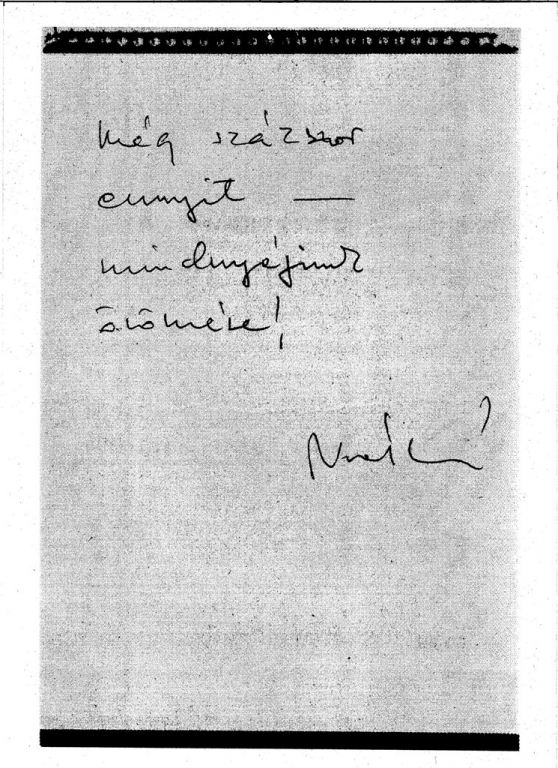 még százszor
ennyit —
mindnyájunk
örömére!